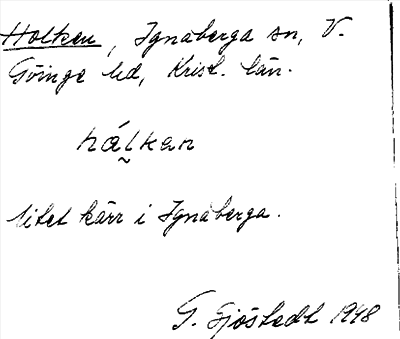 Holken, Ignaberga sn, V.
Göinge hd, Krist. län.
hál̰kan
litet kärr i Ignaberga.
G. Sjöstedt 1948